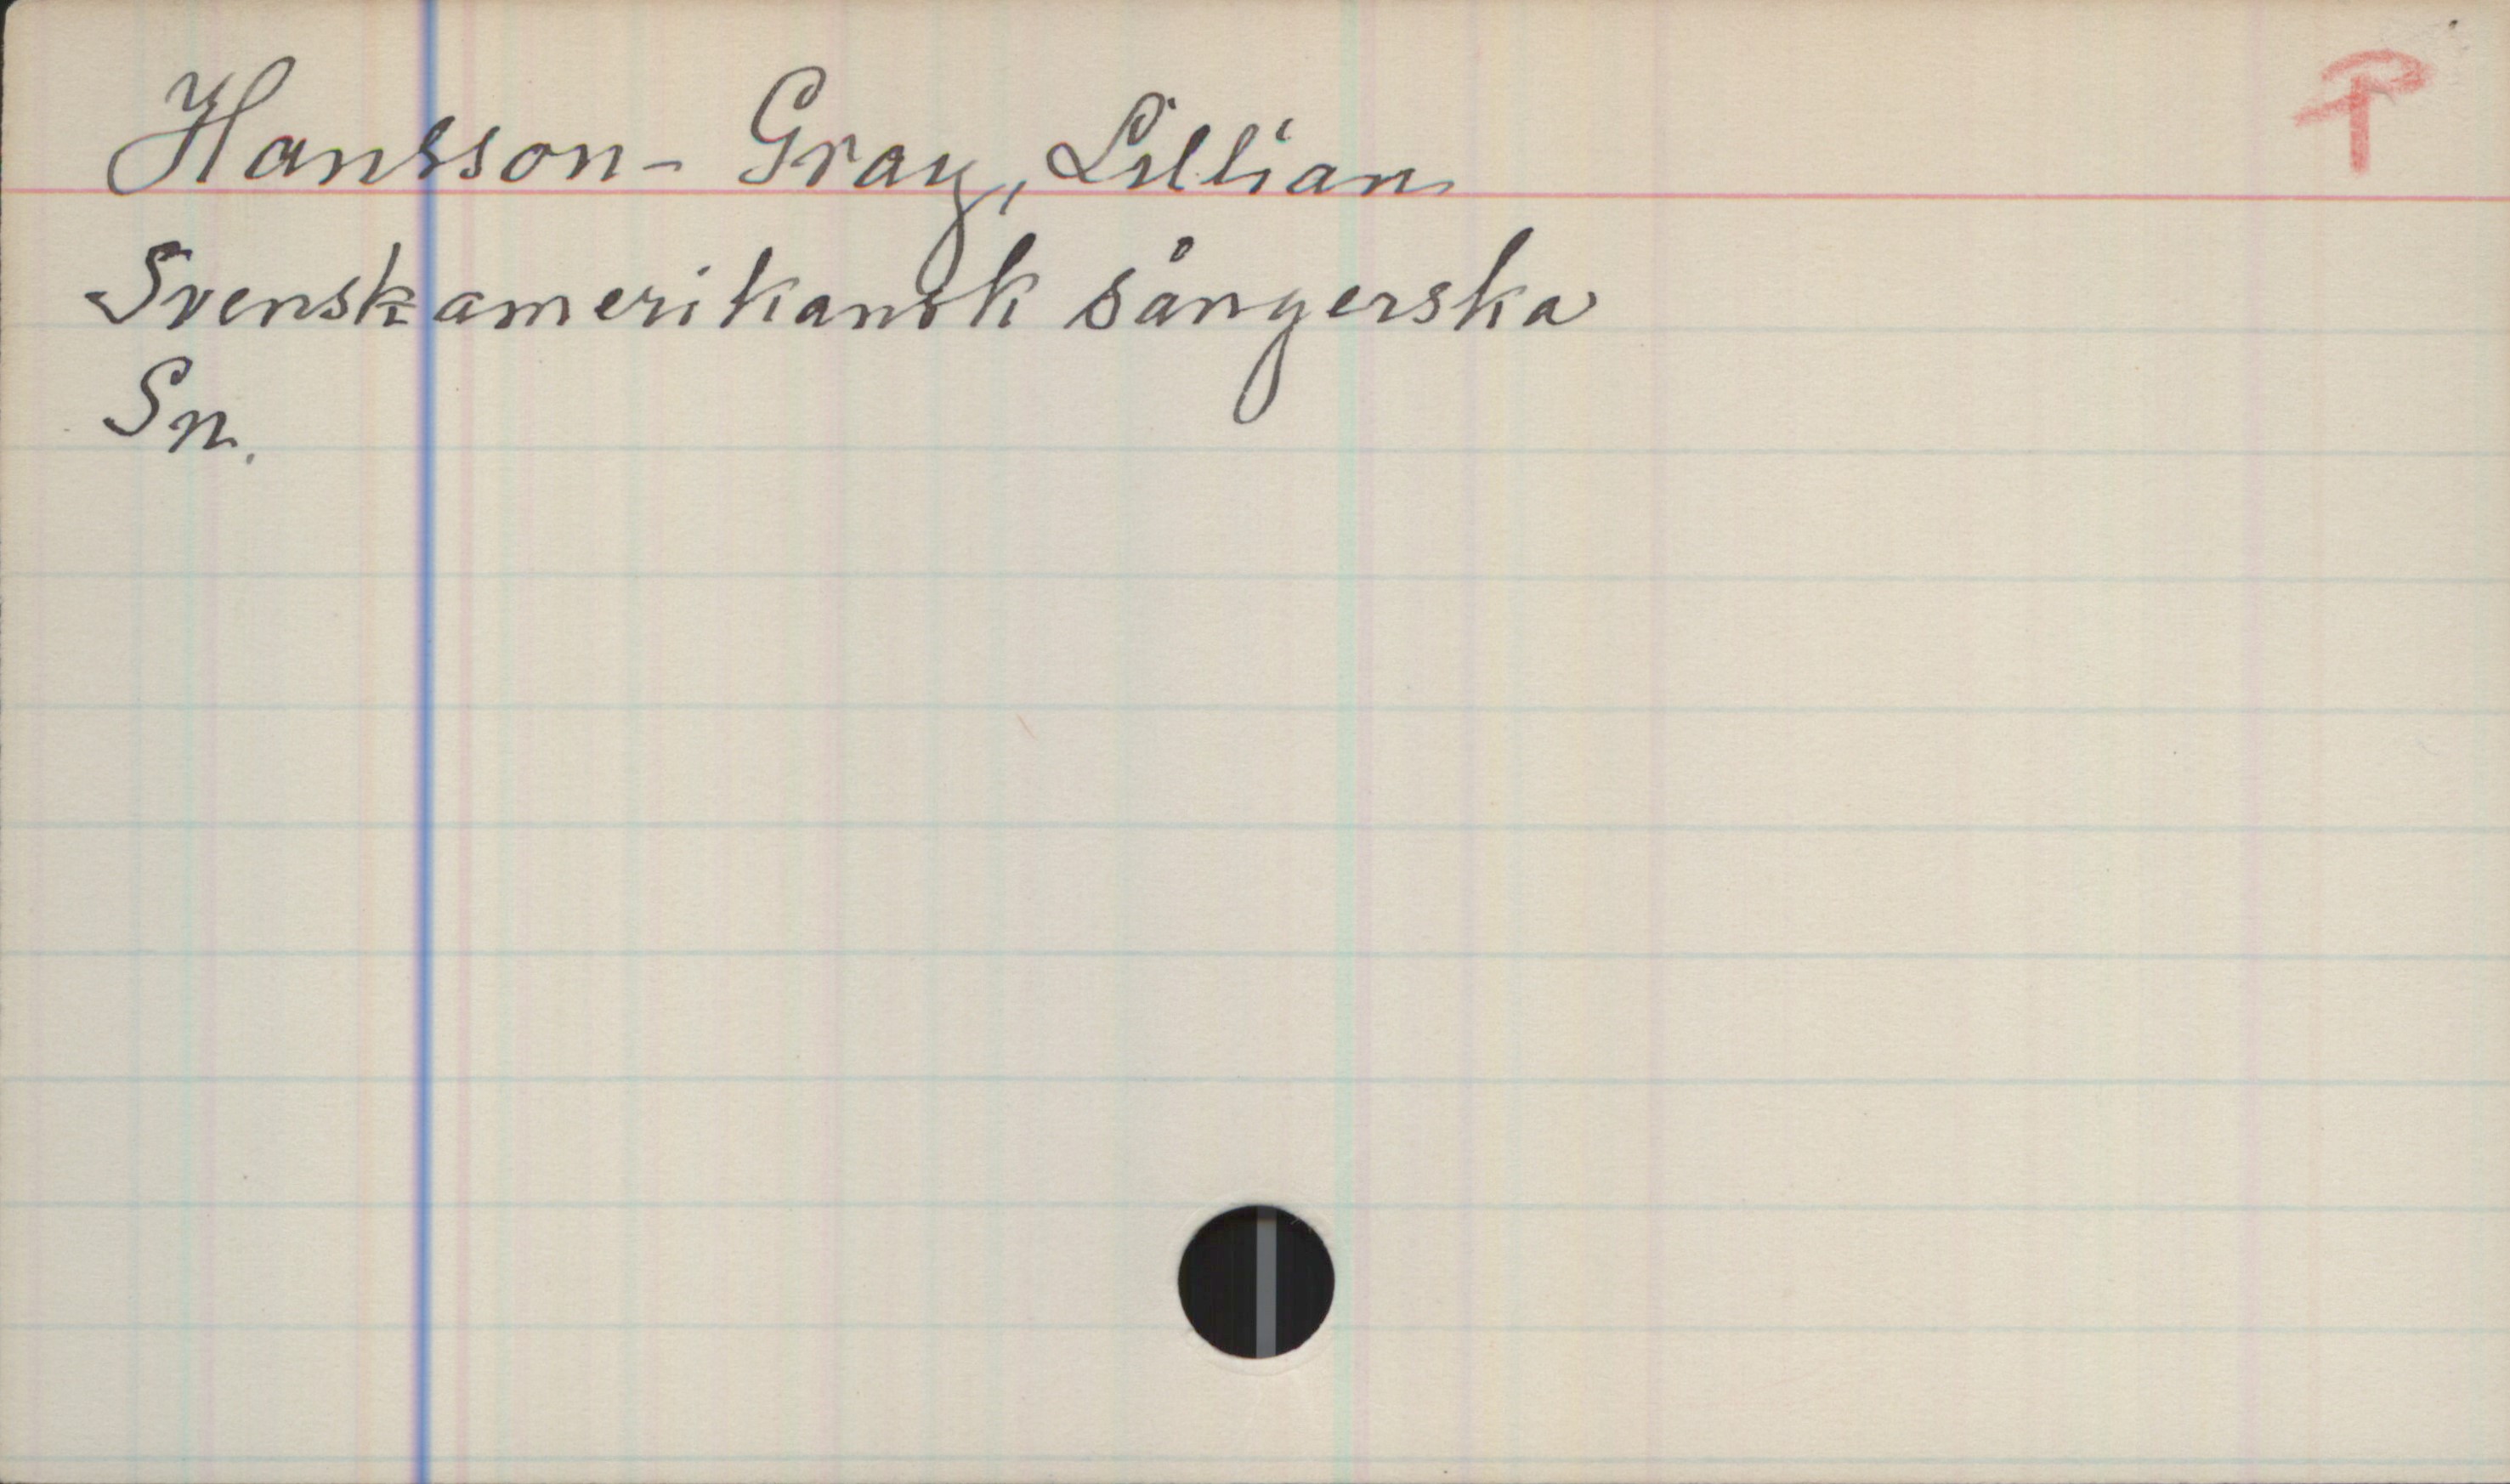 Hansson- Gray, Lillian P
Svenskamerikansk sångerska
Sn.